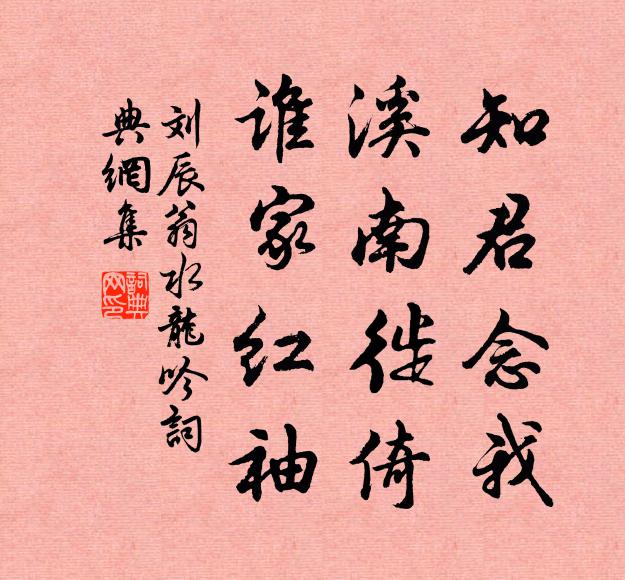 知君念我
溪南徙倚
谁家红袖
刘辰翁水龍吟詞
典網集
詞典网印